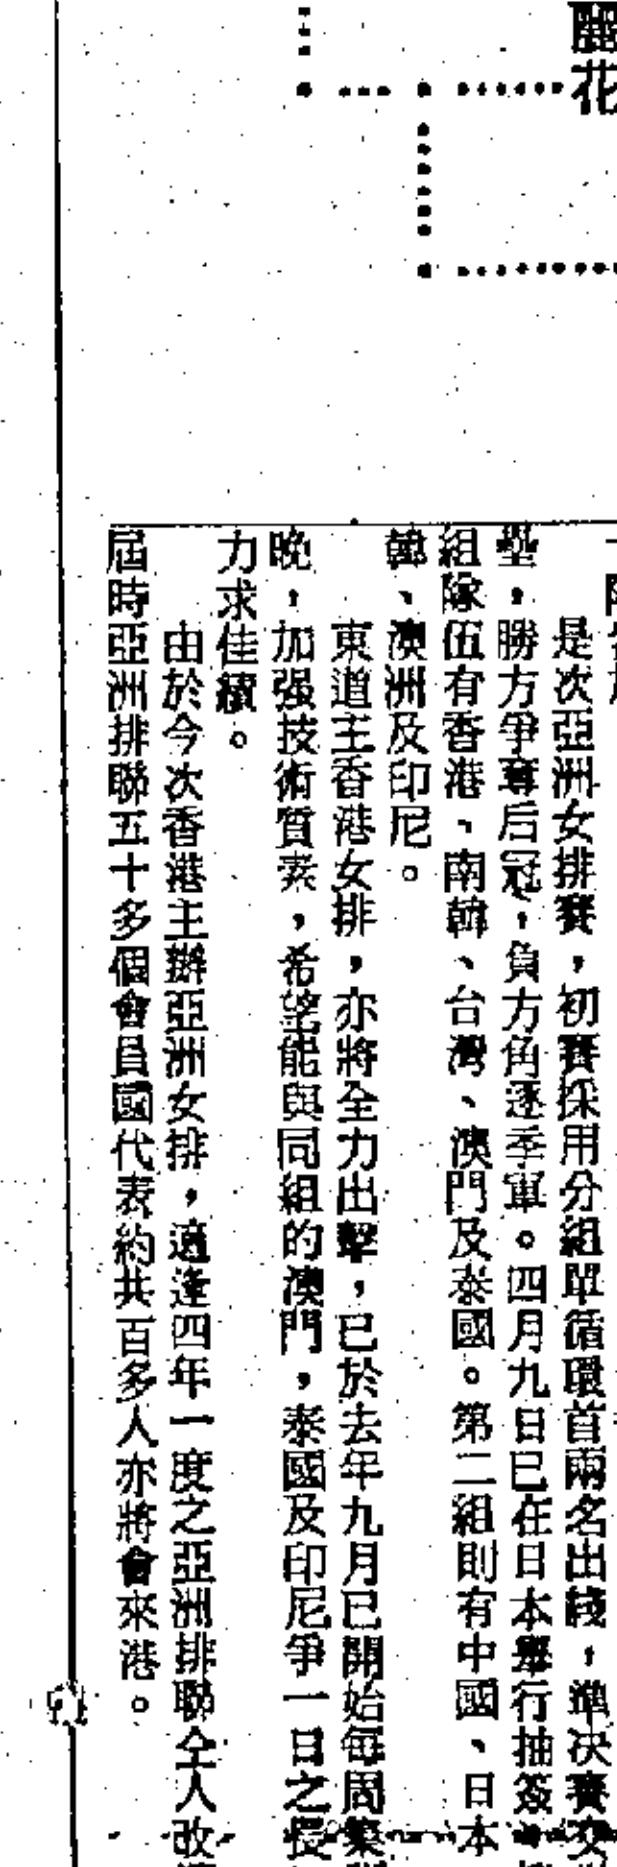 麗花
是次亞洲女排賽，初賽採用分組單循環首兩名出綫，準決賽交
壘，勝方爭奪后冠，負方角逐季軍。四月九日已在日本舉行抽簽
組隊伍有香港、南韓、台灣、澳門及泰國。第二組則有中國、日本
韓、澳洲及印尼。
東道主香港女排，亦將全力出擊，已於去年九月已開始每周集
晚，加强技術質素，希望能與同組的澳門，泰國及印尼爭一日之長
力求佳績。
由於今次香港主辦亞洲女排，適逢四年一度之亞洲排聯仝人改
屆時亞洲排聯五十多個會員國代表約共百多人亦將會來港。